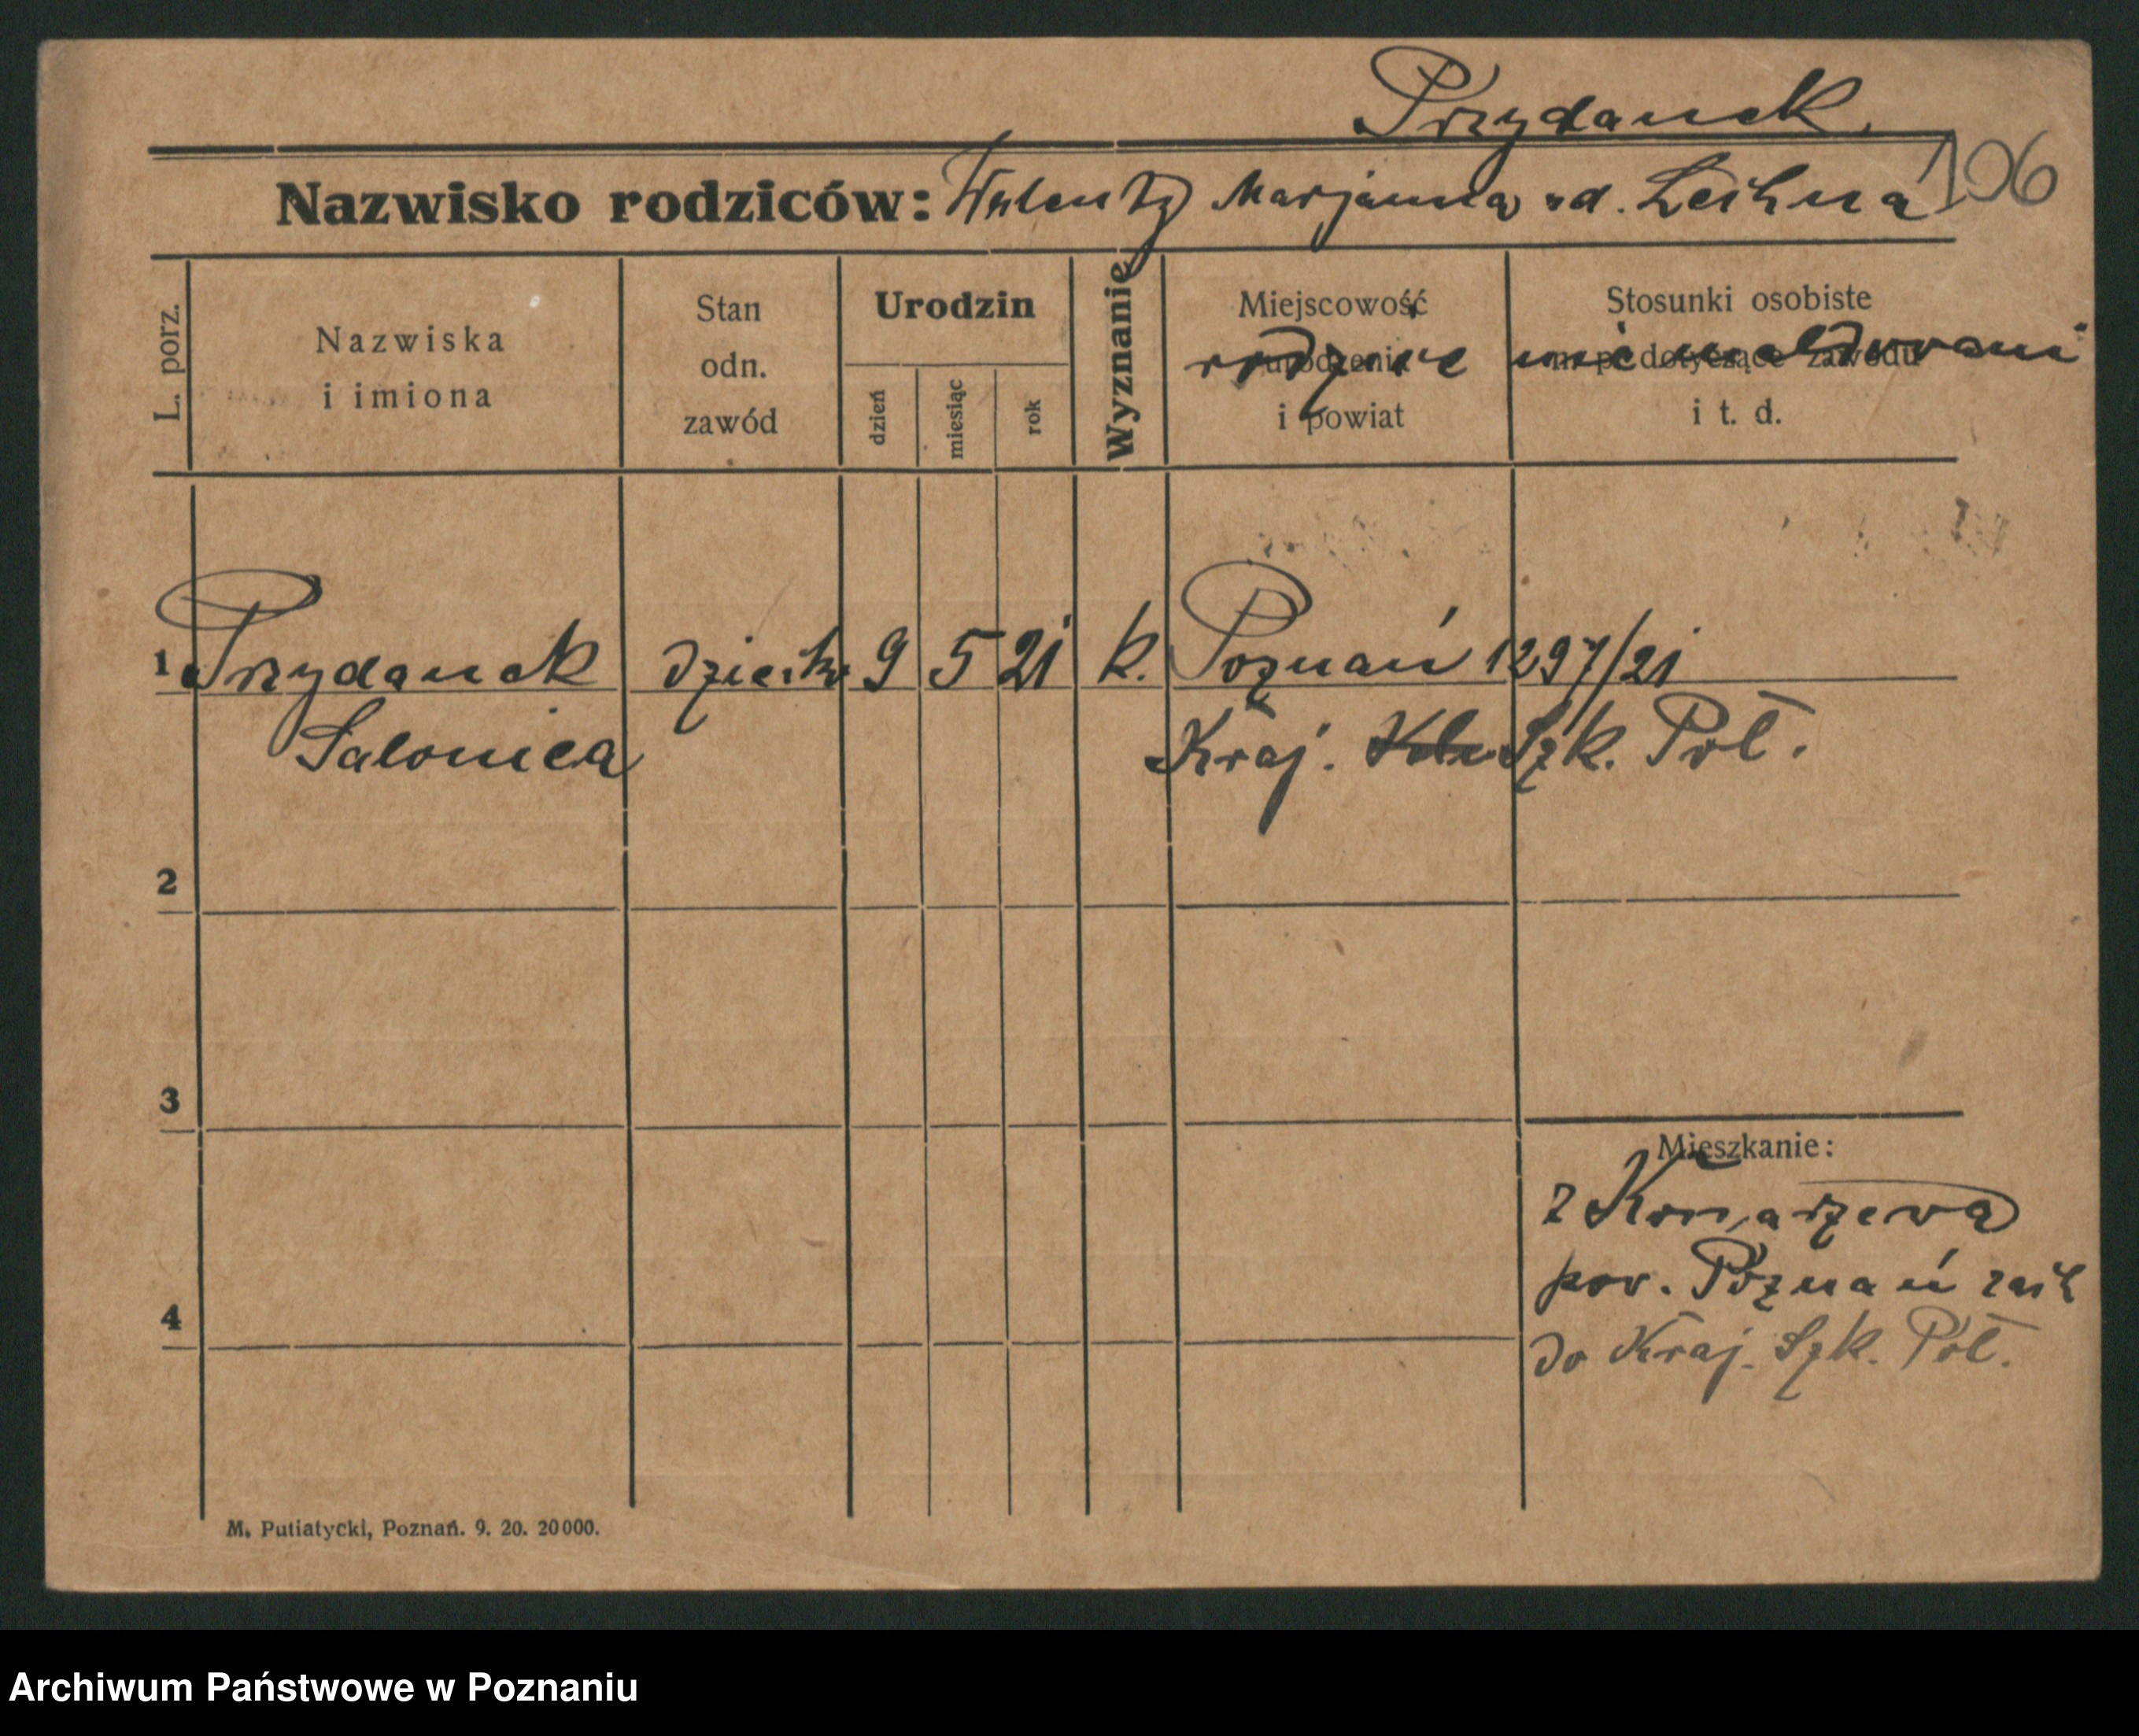 Przydanek
106
Nazwisko rodziców: Walenty Marjanna
L. porz.
Nazwiska i imiona
Stan odn. zawód
Urodzin
dzień
miesiąc
rok
Wyznanie
Miejscowość urodzenia i powiat
Stosunki osobiste n. p. dotyczące zawodu i t. d.
rodzice nie meldowani
1 Przydanek dziecko 9 5 21 k. Poznań 1297/21
Salomea Kraj. Szk. Poł.
2
3
Mieszkanie:
z Komarzewa
pow. Poznań
4
do Kraj. Szk. Poł.
M. Putiatycki, Poznań. 9. 20. 20000.
Archiwum Państwowe w Poznaniu